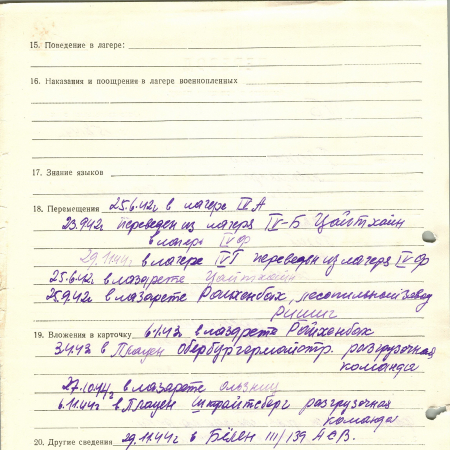 15. Поведение в лагере:
16. Наказания и поощрения в лагере военнопленных
17. Знание языков
18. Перемещения 25.6.42г в лагере IV А
23.9.42г переведен из лагеря IV-Б Цайтхайн
в лагерь IV Ф
29.11.44г в лагере IV Г переведен из лагеря IV Ф
25.6.42г в лазарете Цайтхайн
25.9.42г в лазарете Райхенбах, лесопильный завод
19. Вложения в карточку 6.1.43г в лазарете Райхенбах
3.4.43 в Плауен Обербургермойстр. разгрузочная
команда
27.10.44г в лазарете
6.11.44г в Плауен разгрузочная
команда
20. Другие сведения 29.11.44г в III/139